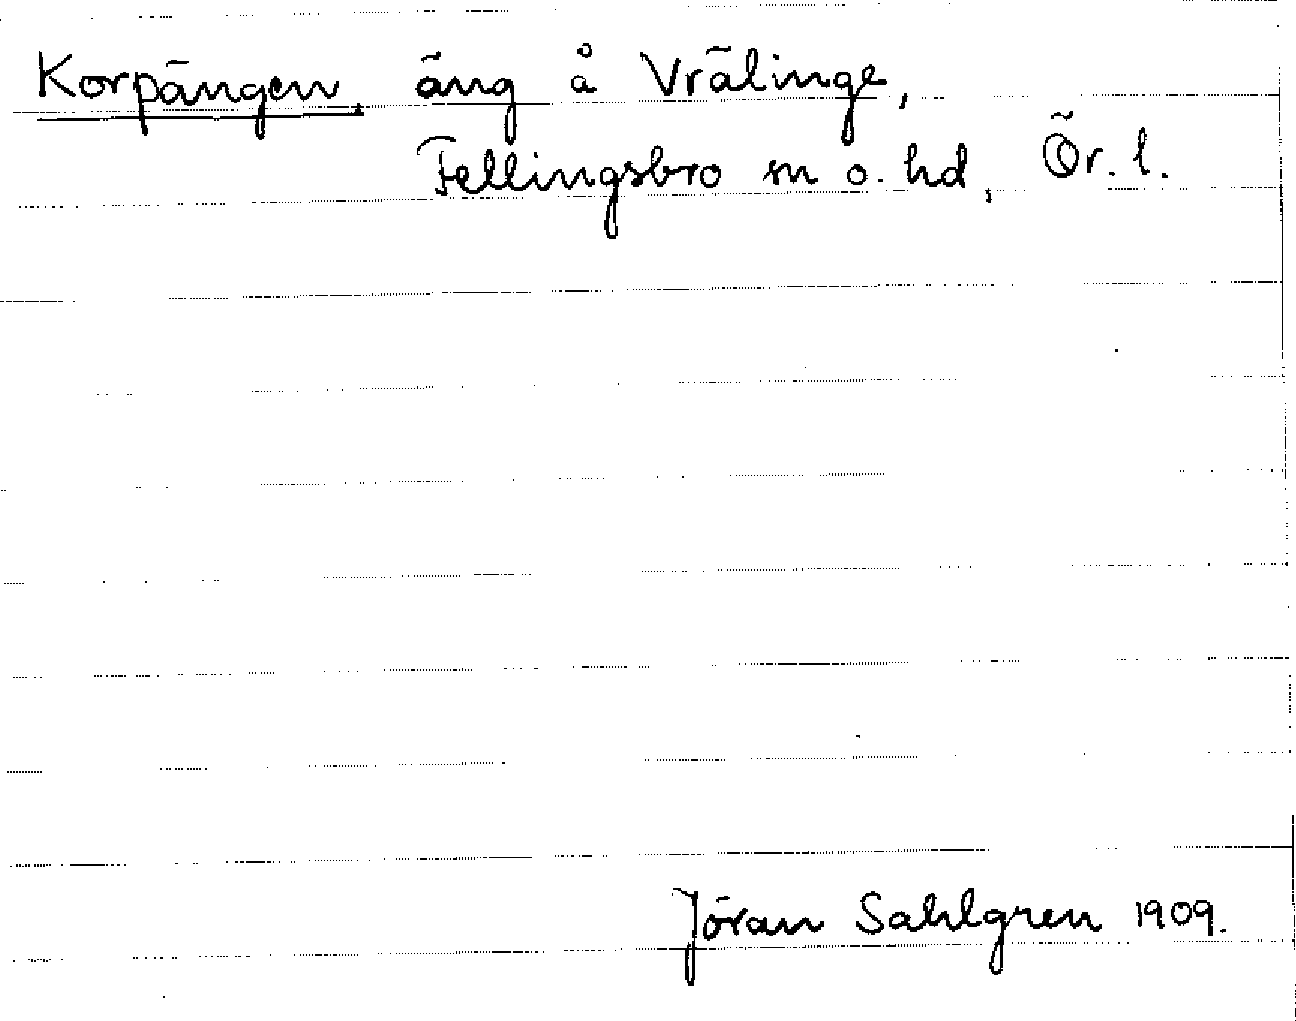 Korpängen, äng å Vrälinge,
Fellingsbro sn o. hd, Ör. l.
Jöran Sahlgren 1909.